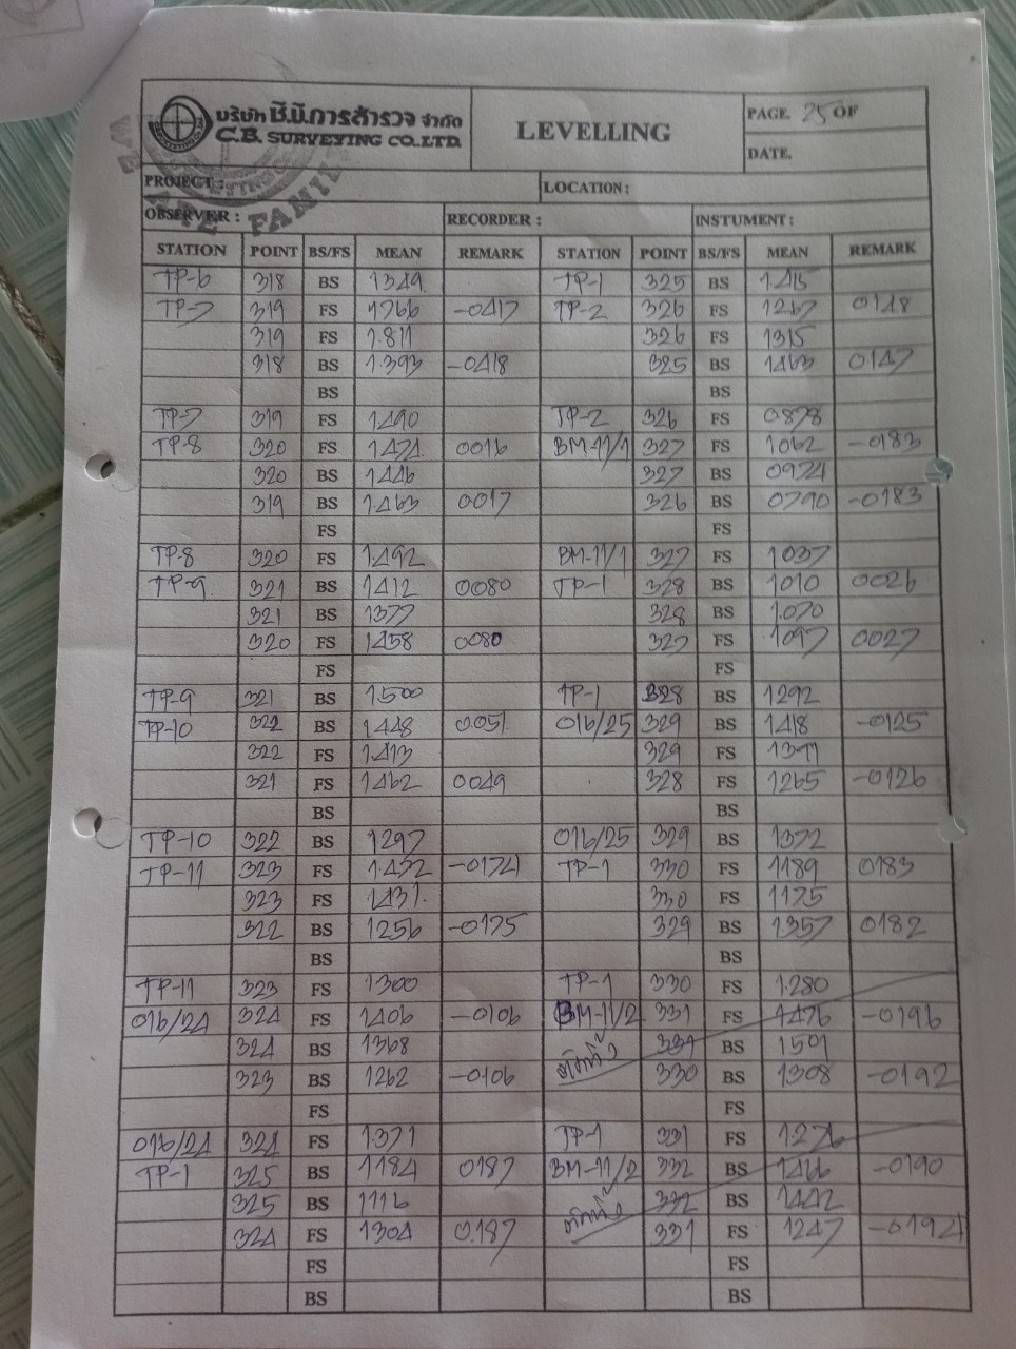 บริษัท ซี.บี.การสำรวจ จำกัด
C.B. SURVEYING CO.LTD.
LEVELLING
PAGE. 25 OF
DATE.
PROJECT :
LOCATION :
OBSERVER :
RECORDER :
INSTUMENT :
STATION POINT BS/FS MEAN REMARK STATION POINT BS/FS MEAN REMARK
TP-6 318 BS 1349 TP-1 325 BS 1.415
TP-7 319 FS 1766 -0417 TP-2 326 FS 1267 0148
319 FS 1.811 326 FS 1315
318 BS 1.393 -0418 325 BS 1463 0147
BS BS
TP-7 319 FS 1490 TP-2 326 FS 0878
TP-8 320 FS 1474 0016 BM-11/1 327 FS 1062 -0183
320 BS 1446 327 BS 0974
319 BS 1463 0017 326 BS 0790 -0183
FS FS
TP-8 320 FS 1492 BM-11/1 327 FS 1037
TP-9 321 BS 1412 0080 TP-1 328 BS 1010 0026
321 BS 1377 328 BS 1.070
320 FS 1458 0080 327 FS 1097 0027
FS FS
TP-9 321 BS 1500 TP-1 328 BS 1292
TP-10 322 BS 1448 0051 016/25 329 BS 1418 -0125
322 FS 1413 329 FS 1391
321 FS 1462 0049 328 FS 1265 -0126
BS BS
TP-10 322 BS 1297 016/25 329 BS 1372
TP-11 323 FS 1.472 -0174 TP-1 330 FS 1189 0183
323 FS 1431 330 FS 1175
322 BS 1256 -0175 329 BS 1357 0182
BS BS
TP-11 323 FS 1300 TP-1 330 FS 1.280
016/24 324 FS 1406 -0106 BM-11/2 331 FS 1476 -0196
324 BS 1368 331 BS 1501
323 BS 1262 -0106 330 BS 1308 -0192
FS FS
016/24 324 FS 1371 TP-1 331 FS 1276
TP-1 325 BS 1184 0187 BM-11/2 332 BS 1466 -0190
325 BS 1116 332 BS 1442
324 FS 1304 0.187 331 FS 1247 -0194
FS FS
BS BS